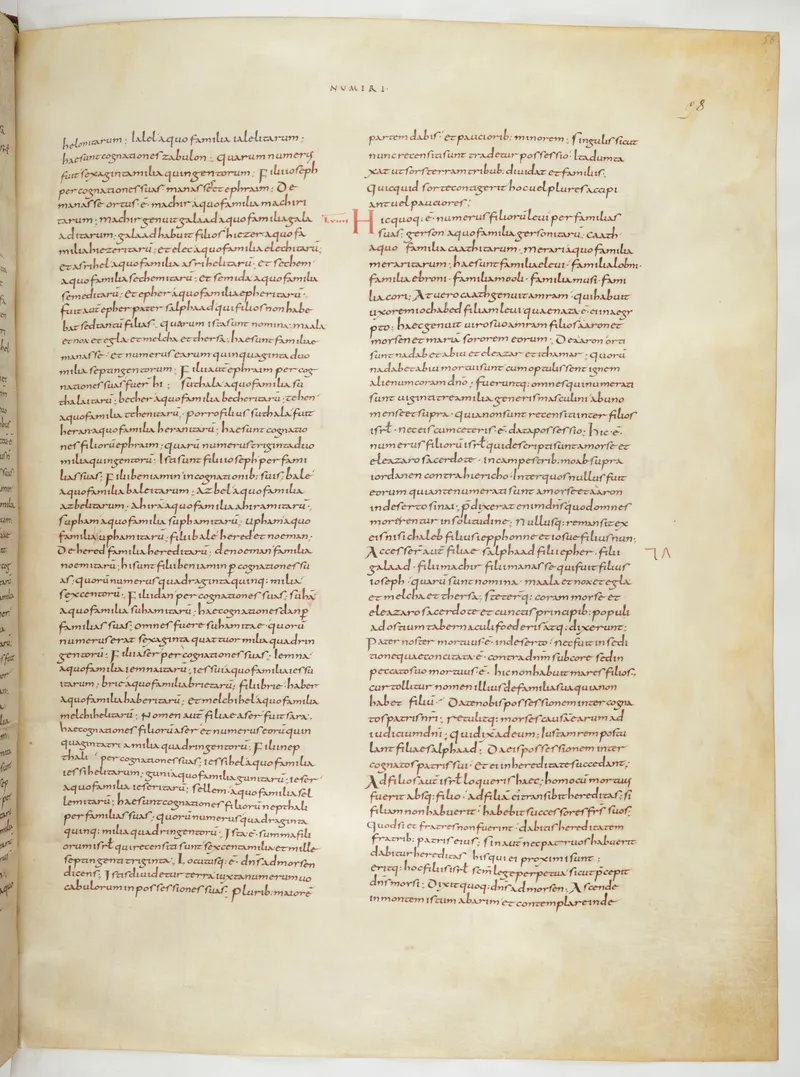 NUMERI
98
helonitarum; Ialel aquo familia ialelitarum;
hae sunt cognationes zabulon; quarum numerus
fuit sexaginta milia quingentorum; Filii ioseph
per cognationes suas manasse et ephraim; De
manasse ortus ē machir aquo familia machiri
tarum; machir genuit galaad aquo familia gala
aditarum; galaad habuit filios hiezer aquo fa
milia hiezeritarū; et elec aquo familia elechitarū;
et asrihel aquo familia asrihelitarū; et sechem
aquo familia sechemitarū; et semida aquo familia
semeditarū; et epher aquo familia epheritarū;
fuit aut epher pater salphaad qui filios non habe
bat sed tantū filias; quarum ista sunt nomina; maala
et noa et egla et melcha et thersa; hae sunt familiae
manasse et numerus earum quinquaginta duo
milia septingentorum; Filii aut ephraim per cog
nationes suas fuer hi; suthala aquo familia su
thalaitarū; becher aquo familia becheritarū; tehen
aquo familia tehenitarū; porro filius suthala fuit
heran aquo familia heranitarū; hae sunt cognatio
nes filiorū ephraim; quarū numerus triginta duo
milia quingentorū; Isti sunt filii ioseph per fami
lias suas; Filii beniamin in cognationib; suis; bale
aquo familia baleitarum; azbel aquo familia
azbelitarum; ahira aquo familia ahiramitarū;
supham aquo familia suphamitarū; upham aquo
familia uphamitarū; filii bale hered et noeman;
De hered familia hereditarū; de noeman familia
noemitarū; hi sunt filii beniamin p cognationes su
as; quorū numerus quadraginta quinq; milia
sexcentorū; Filii dan per cognationes suas; suhā
aquo familia suhamitarū; hae cognationes dan p
familias suas; omnes fuere suhamitae quorū
numerus erat sexaginta quattuor milia quadrin
gentorū; Filii aser per cognationes suas; Iemna
aquo familia iemnaitarū; iessui aquo familia iessu
itarum; brie aquo familia brietarū; filii brie haber
aquo familia haberitarū; et melchihel aquo familia
melchihelitarū; Nomen aut filiae aser fuit sara;
hae cognationes filiorū aser et numerus eorū quin
quaginta tria milia quadringentorū; Filii nep
thali per cognationes suas; iessihel aquo familia
iessihelitarum; guni aquo familia gunitarū; ieser
aquo familia ieseritarū; sellem aquo familia sel
lemitarū; hae sunt cognationes filiorū nepthali
per familias suas; quorū numerus quadraginta
quinq; milia quadringentorū; Ista ē summa fili
orum isrl qui recensiti sunt sexcenta milia et mille
septingenta triginta; Locutusq; ē dns ad moysen
dicens; Istis diuidetur terra iuxta numerum uo
cabulorum in possessiones suas; pluribus maiorē
partem dabis et paucioribus minorem; singulis sicut
nunc recensiti sunt tradetur possessio; Ita dumta
xat ut sors terram tribub; diuidat et familiis;
quicquid sorte contigerit hoc uel plures accipi
ant uel pauciores;
Hicquoq; ē numerus filiorū leui per familias
suas; gerson aquo familia gersonitarū; caath
aquo familia caathitarum; merari aquo familia
meraritarum; hae sunt familiae leui; familia lobni;
familia ebroni; familia mooli; familia musi; fami
lia cori; At uero caath genuit amram; qui habuit
uxorem iochabed filiam leui quae nata ē ei in aegy
pto; haec genuit uiro suo amram filios aaron et
moysen et mariā sororem eorum; De aaron orti
sunt nadab et abiu et eleazar et ithamar; quorū
nadab et abiu mortui sunt cum optulissent ignem
alienum coram dno; fueruntq; omnes qui numerati
sunt uiginti tria milia generis masculini ab uno
mense et supra; quia non sunt recensiti inter filios
isrl nec eis cum ceteris ē data possessio; hic ē
numerus filiorū isrl qui descripti sunt a moyse et
eleazaro sacerdote in campestrib; moab supra
iordanen contra hiericho; Inter quos nullus fuit
eorum qui ante numerati sunt a moyse et aaron
in deserto sinai; p̄dixerat enim dns quod omnes
morerentur in solitudine; Nullusq; remansit ex
eis nisi chaleb filius iepphonne et iosue filius nun;
Accesser aut filiae salphaad filii epher; filii
galaad filii machir filii manasse qui fuit filius
ioseph; quarū sunt nomina; maala et noa et egla
et melcha et thersa; steterq; coram moyse et
eleazaro sacerdote et cunctis principib; populi
ad ostium tabernaculi foederis atq; dixerunt;
Pater noster mortuus ē in deserto nec fuit in sedi
tione quae concitata ē contra dnm sub core sed in
peccato suo mortuus ē; hic non habuit mares filios;
cur tollitur nomen illius de familia sua quia non
habet filiū; Date nobis possessionem inter cogna
tos patris nri; rettulitq; moyses causā earum ad
iudicium dni; qui dixit ad eum; Iustam rem postu
lant filiae salphaad; Da eis possessionem inter
cognatos patris sui et ei in hereditate succedant;
Ad filios aut isrl loqueris haec; homo cū mortuus
fuerit absq; filio ad filiā ei transibit hereditas; si
filiam non habuerit habebit successores frs suos;
Quod si et fratres non fuerint dabitis hereditatem
fratrib; patris eius; sin aut nec patruos habuerit
dabitur hereditas his qui ei proximi sunt;
Eritq; hoc filiis isrl scm lege perpetua sicut p̄cepit
dns moysi; Dixit quoq; dns ad moysen; Ascende
in montem istum abarim et contemplare inde